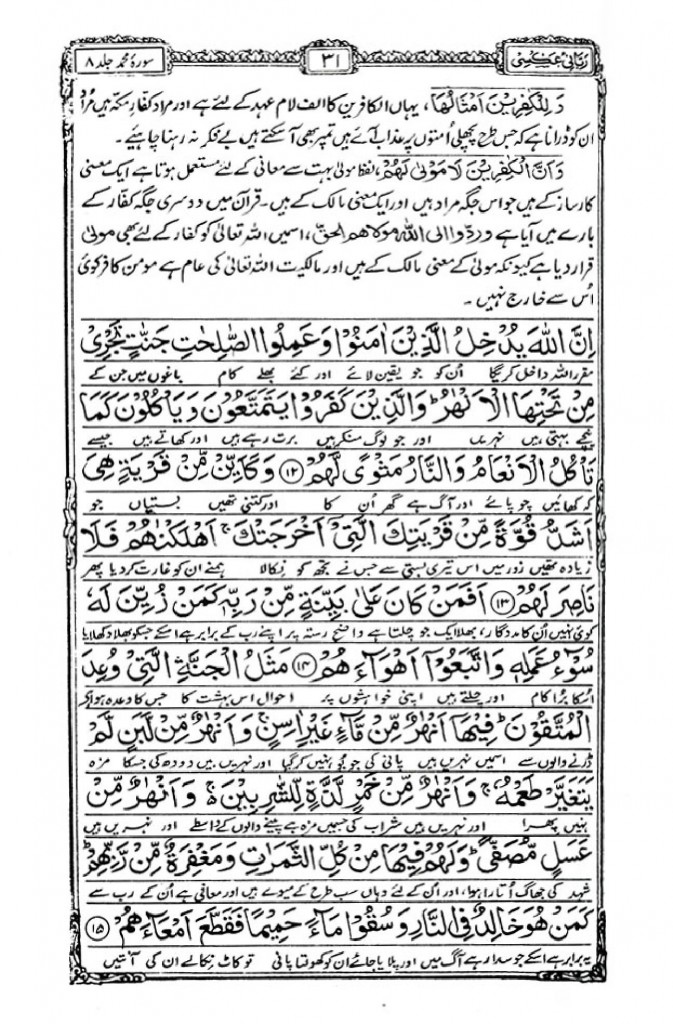 سورۂ محمد جلد ۸
۳۱
وَلِلْكٰفِرِيْنَ اَمْثَالُهَا، یہاں الکافرین کا الف لام عہد کے لئے ہے اور مراد کفار مکہ ہیں مُراد
ان کو ڈرانا ہے کہ جس طرح پچھلی اُمتوں پر عذاب آئے ہیں تمپر بھی آ سکتے ہیں بے فکر نہ رہنا چاہیے۔
وَاَنَّ الْكٰفِرِيْنَ لَا مَوْلٰى لَهُمْ، لفظ مولیٰ بہت سے معانی کے لئے مستعمل ہوتا ہے ایک معنی
کارساز کے ہیں جو اس جگہ مراد ہیں اور ایک معنی مالک کے ہیں۔ قرآن میں دوسری جگہ کفار کے
بارے میں آیا ہے وردّوا الی اللہ مولاھم الحق، اسمیں اللہ تعالیٰ کو کفار کے لئے بھی مولیٰ
قرار دیا ہے کیونکہ مولیٰ کے معنی مالک کے ہیں اور مالکیت اللہ تعالیٰ کی عام ہے مومن کافر کوئی
اُس سے خارج نہیں۔
اِنَّ اللّٰهَ يُدْخِلُ الَّذِيْنَ اٰمَنُوْا وَعَمِلُوا الصّٰلِحٰتِ جَنّٰتٍ تَجْرِيْ
مقرر اللہ داخل کریگا اُن کو جو یقین لائے اور کئے بھلے کام باغوں میں جن کے
مِنْ تَحْتِهَا الْاَنْهٰرُ ؕ وَالَّذِيْنَ كَفَرُوْا يَتَمَتَّعُوْنَ وَيَاْكُلُوْنَ كَمَا
نیچے بہتی ہیں نہریں اور جو لوگ منکر ہیں برت رہے ہیں اور کھاتے ہیں جیسے
تَاْكُلُ الْاَنْعَامُ وَالنَّارُ مَثْوًى لَّهُمْ ﴿۱۲﴾ وَكَاَيِّنْ مِّنْ قَرْيَةٍ هِيَ
کہ کھائیں چوپائے اور آگ ہے گھر اُن کا اور کتنی تھیں بستیاں جو
اَشَدُّ قُوَّةً مِّنْ قَرْيَتِكَ الَّتِيْ اَخْرَجَتْكَ ۚ اَهْلَكْنٰهُمْ فَلَا
زیادہ تھیں زور میں اس تیری بستی سے جس نے تجھ کو نکالا ہمنے ان کو غارت کر دیا پھر
نَاصِرَ لَهُمْ ﴿۱۳﴾ اَفَمَنْ كَانَ عَلٰى بَيِّنَةٍ مِّنْ رَّبِّهٖ كَمَنْ زُيِّنَ لَهٗ
کوئی نہیں اُن کا مددگار، بھلا ایک جو چلتا ہے واضح رستہ پر اپنے رب کے برابر ہے اسکے جسکو بھلا دکھلایا
سُوْٓءُ عَمَلِهٖ وَاتَّبَعُوْٓا اَهْوَآءَهُمْ ﴿۱۴﴾ مَثَلُ الْجَنَّةِ الَّتِيْ وُعِدَ
اُسکا بُرا کام اور چلتے ہیں اپنی خواہشوں پر احوال اس بہشت کا جس کا وعدہ ہوا ہے
الْمُتَّقُوْنَ ؕ فِيْهَآ اَنْهٰرٌ مِّنْ مَّآءٍ غَيْرِ اٰسِنٍ ۚ وَاَنْهٰرٌ مِّنْ لَّبَنٍ لَّمْ
ڈرنے والوں سے اسمیں نہریں ہیں پانی کی جو بو نہیں کر گیا اور نہریں ہیں دودھ کی جسکا مزہ
يَتَغَيَّرْ طَعْمُهٗ ۚ وَاَنْهٰرٌ مِّنْ خَمْرٍ لَّذَّةٍ لِّلشّٰرِبِيْنَ ۚ وَاَنْهٰرٌ مِّنْ
نہیں پھرا اور نہریں ہیں شراب کی جسمیں مزہ ہے پینے والوں کے واسطے اور نہریں ہیں
عَسَلٍ مُّصَفًّى ؕ وَلَهُمْ فِيْهَا مِنْ كُلِّ الثَّمَرٰتِ وَمَغْفِرَةٌ مِّنْ رَّبِّهِمْ ؕ
شہد کی جھاگ اُتارا ہوا، اور اُن کے لئے وہاں سب طرح کے میوے ہیں اور معافی ہے اُن کے رب سے
كَمَنْ هُوَ خَالِدٌ فِي النَّارِ وَسُقُوْا مَآءً حَمِيْمًا فَقَطَّعَ اَمْعَآءَهُمْ ﴿۱۵﴾
یہ برابر ہے اسکے جو سدا رہے آگ میں اور پلایا جائے ان کو کھولتا پانی تو کاٹ نکالے ان کی آنتیں